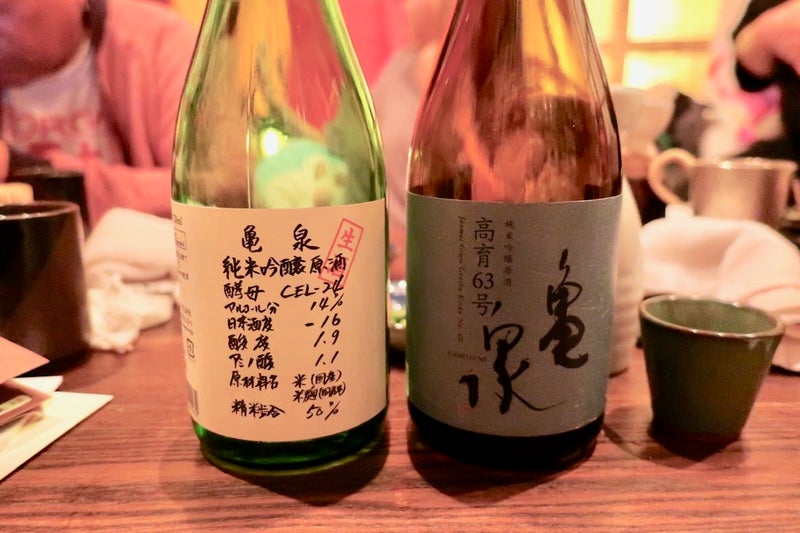 亀 泉
生
純米吟醸原酒
酵母 CEL-24
アルコール分 14%
日本酒度 -16
酸度 1.9
アミノ酸 1.1
原材料名 米(国産)
米麹(国産米)
精米歩合 50%
純米吟醸原酒
高育63号
Junmai Ginjo Genshu Koiku No. 63
亀泉
KAMEIZUMI